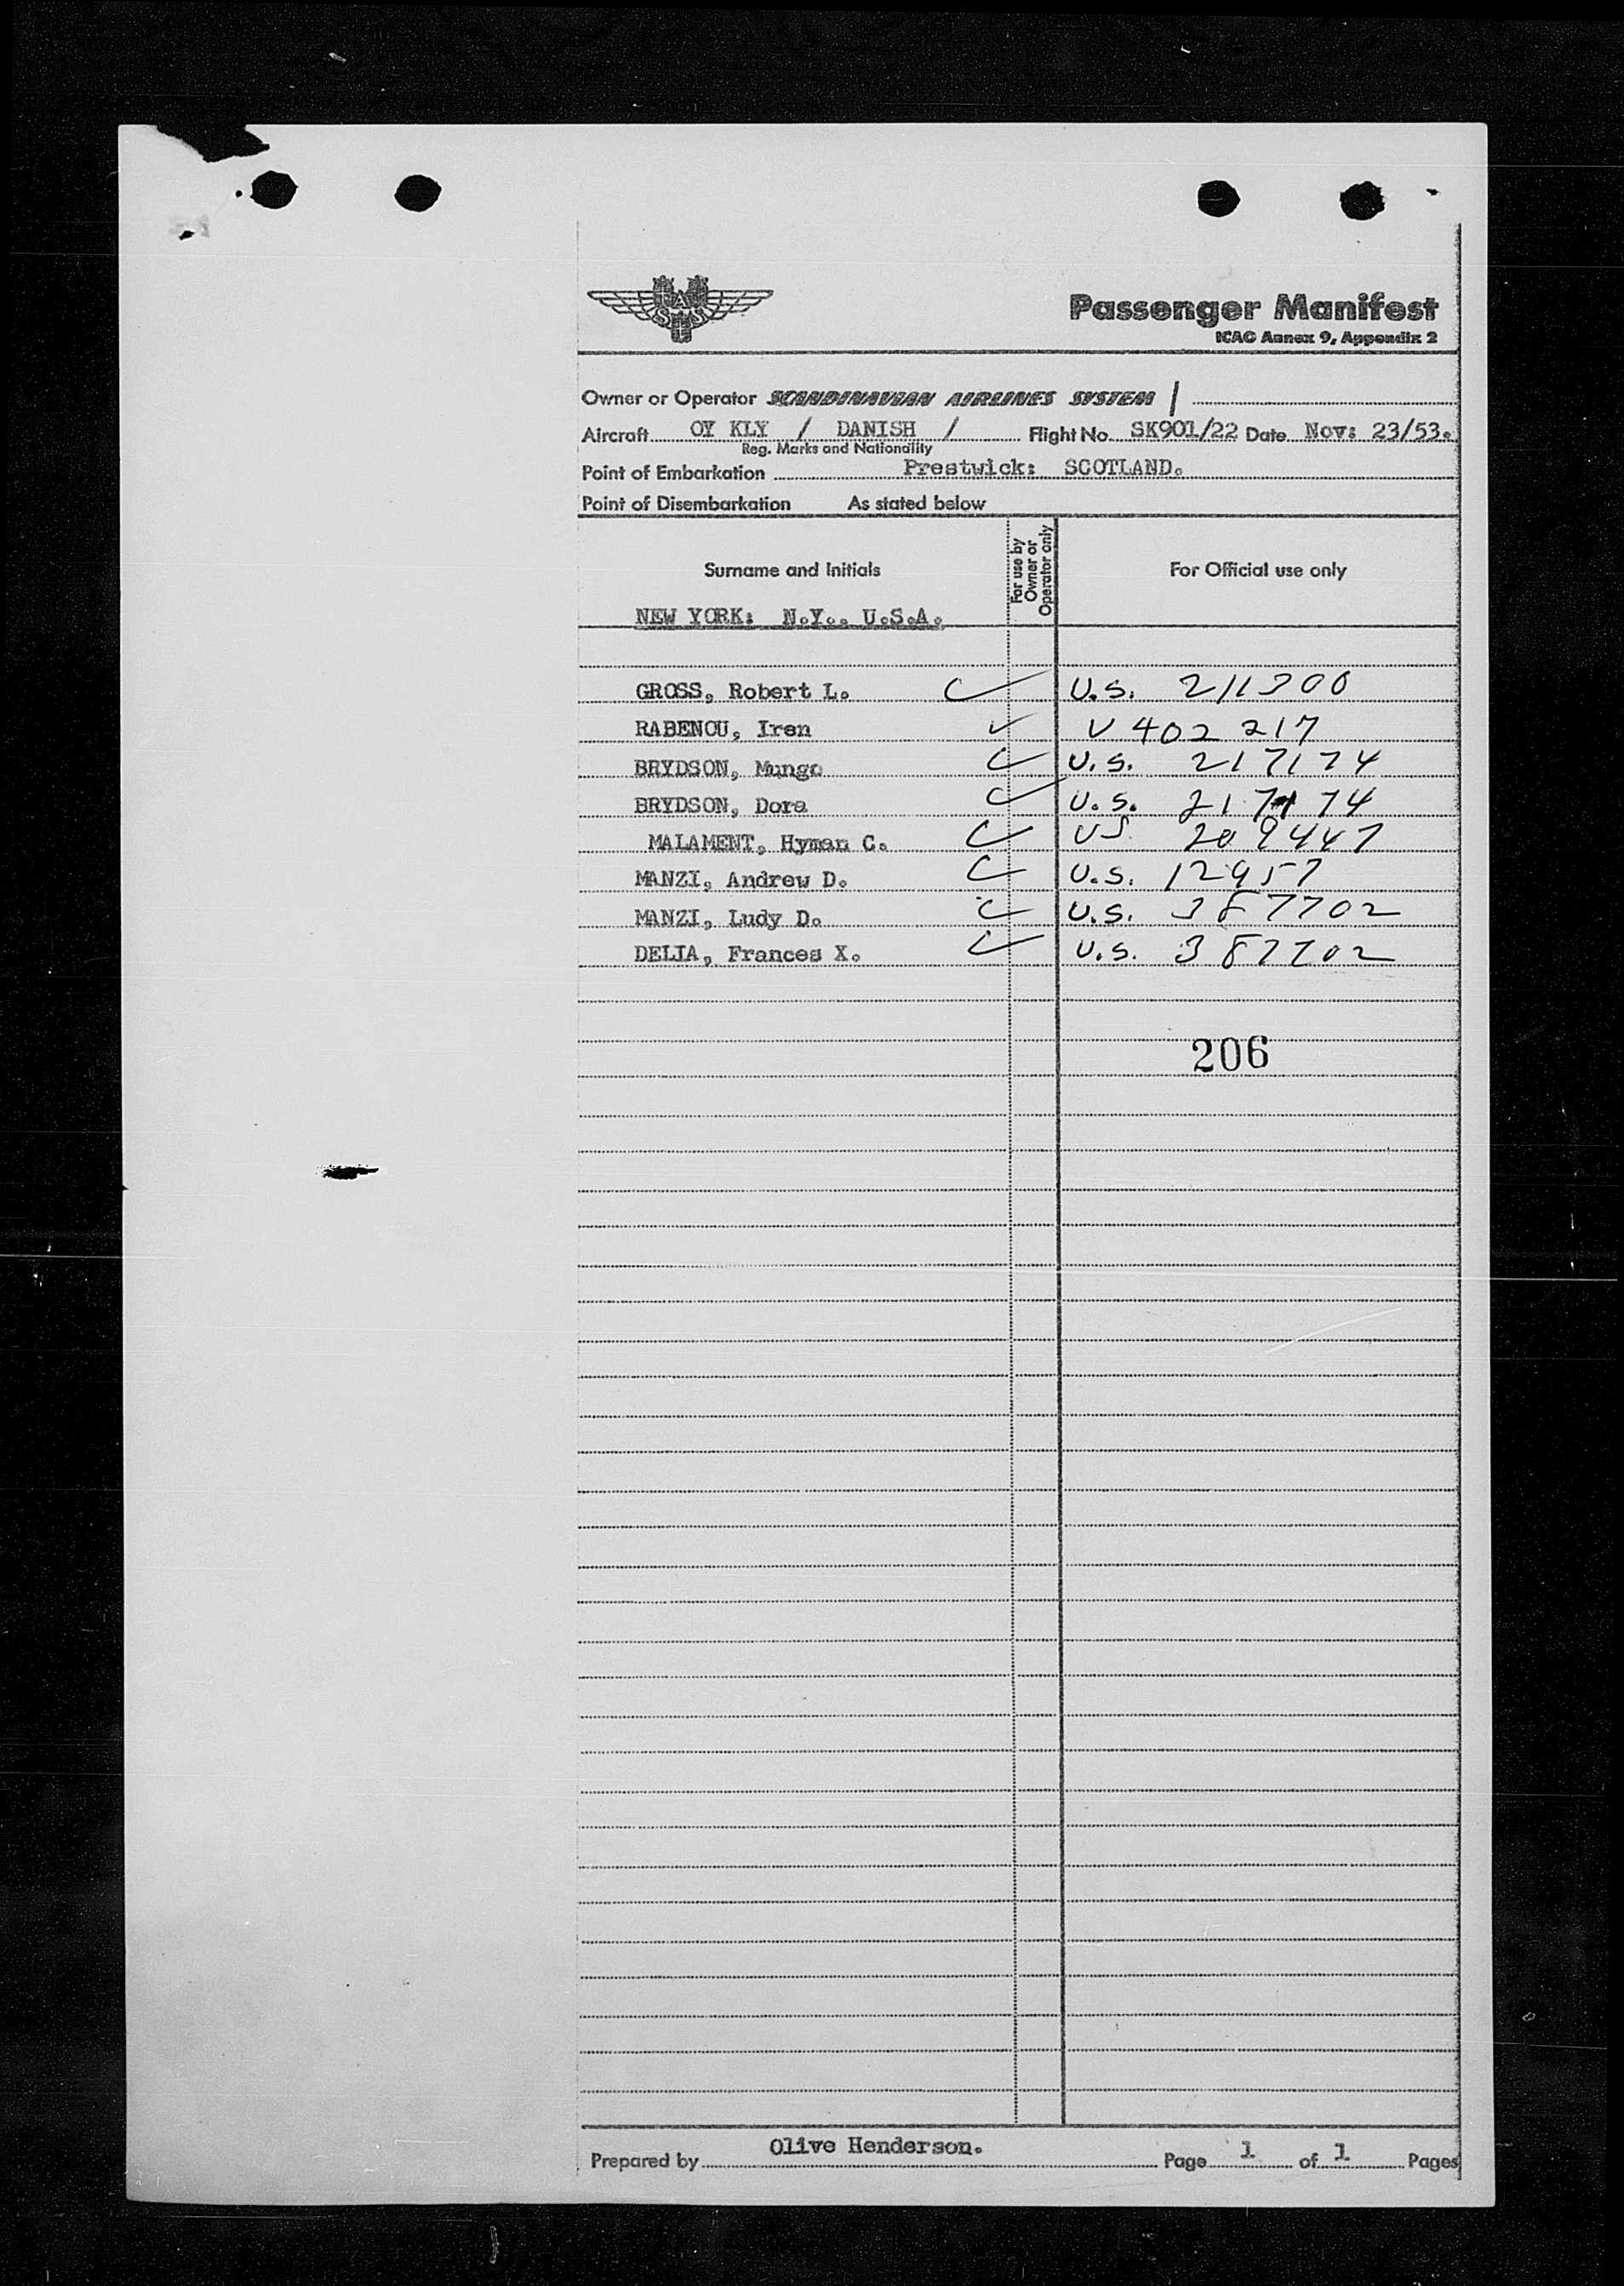 SAS
Passenger Manifest
ICAO Annex 9, Appendix 2
Owner or Operator SCANDINAVIAN AIRLINES SYSTEM /
Aircraft OY KLY / DANISH / Flight No. SK901/22 Date Nov: 23/53.
Reg. Marks and Nationality
Point of Embarkation Prestwick: SCOTLAND.
Point of Disembarkation As stated below
Surname and Initials For use by Owner or Operator only For Official use only
NEW YORK: N.Y.. U.S.A.
GROSS, Robert L. ✓ U.S. 211300
RABENOU, Iren ✓ V 402 217
BRYDSON, Mungo ✓ U.S. 217174
BRYDSON, Dora ✓ U.S. 217174
MALAMENT, Hyman C. ✓ US 209447
MANZI, Andrew D. ✓ U.S. 12957
MANZI, Ludy D. ✓ U.S. 387702
DELIA, Frances X. ✓ U.S. 387702
206
Prepared by Olive Henderson. Page 1 of 1 Pages